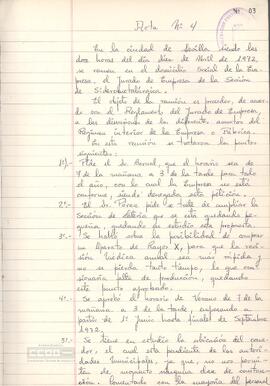 Nº 03
Acta Nº 4
En la ciudad de Sevilla siendo las
doce horas del día diez de Abril de 1972,
se reunen en el domicilio social de la Em-
presa, el Jurado de Empresa de la Sección
de Siderometalúrgica.
El objeto de la reunión es proceder, de acuer-
do con el Reglamento del Jurado de Empresa,
a las discusiones de los diferentes asuntos del
Régimen interior de la Empresa o Fábrica.
En esta reunión se trataron los puntos
siguientes:
1º).- Pide el Sr. Bernal, que el horario sea de
7 de la mañana a 3 de la tarde para todo
el año, con lo cual la Empresa se está
conforme, siendo denegada esta petición.
2º.- El Sr. Pérez pide se trate de ampliar la
Sección de Galería que se está quedando pe-
queña, quedando en estudio esta propuesta.
3º.- Se habla sobre la posibilidad de comprar
un Aparato de Rayos X, para que la revi-
sión médica anual sea más rápida y no
se pierda tanto tiempo, lo que oca-
sionaría falta de producción, quedando
este punto aprobado.
4º.- Se aprobó el horario de Verano de 7 de la
mañana a 3 de la tarde, empezando a
partir de 1º Junio hasta final de Septiembre
1972.
5º.- Se tiene en estudio la ubicación del come-
dor, el cual está pendiente de las autori-
dades Municipales, ya que, no nos permi-
ten de momento ninguna clase de construc-
ción, comentado con la mayoría del personal
CCOO